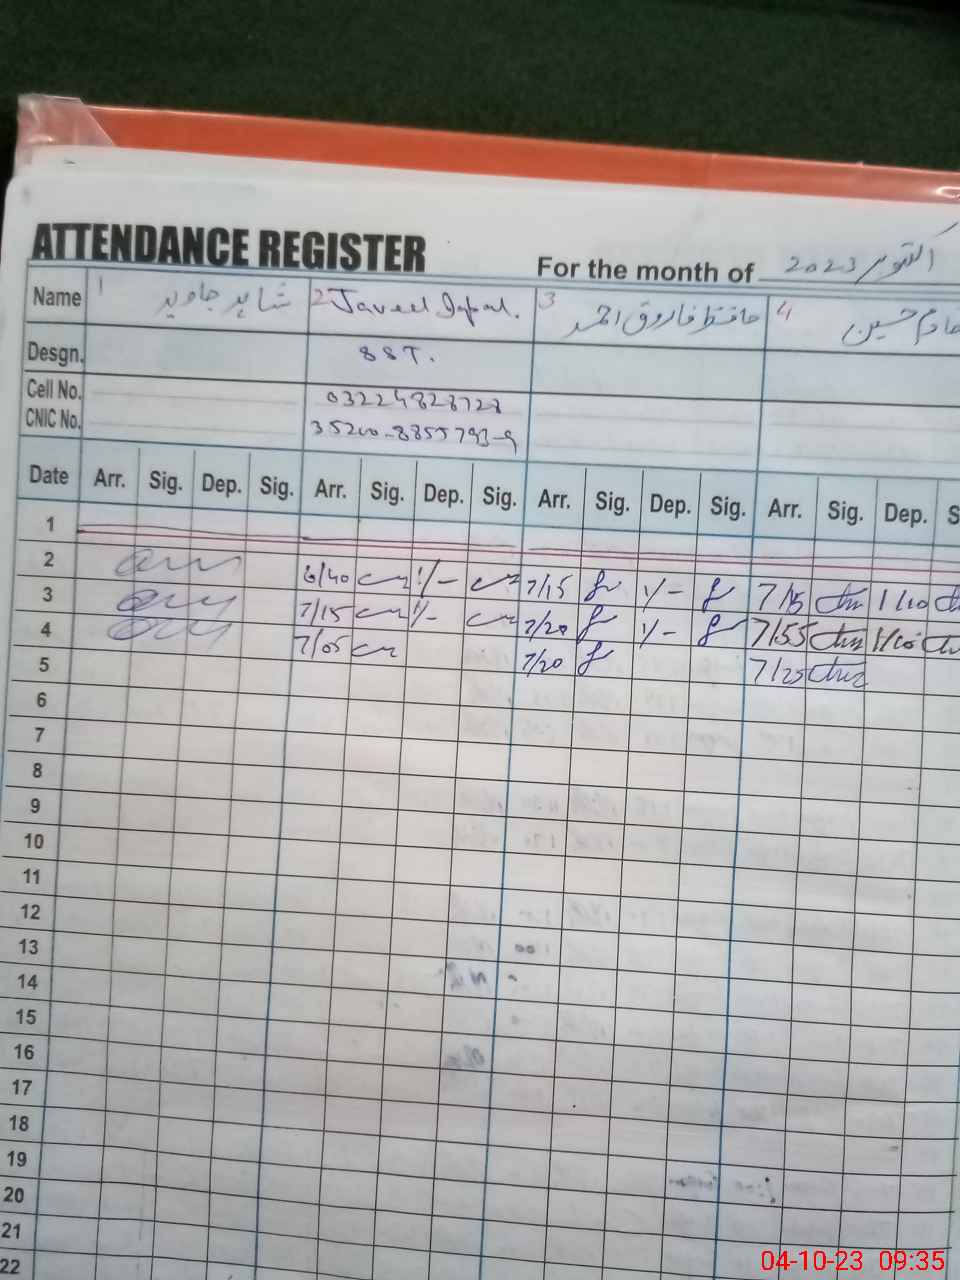 ATTENDANCE REGISTER
For the month of اکتوبر 2023
Name 1 شاہد جاوید 2 Javeed Iqbal. 3 حافظ فاروق احمد 4 خادم حسین
Desgn. SST.
Cell No. 03224828728
CNIC No. 35200-8855793-9
Date Arr. Sig. Dep. Sig. Arr. Sig. Dep. Sig. Arr. Sig. Dep. Sig. Arr. Sig. Dep. S
1
2 6/40 1/- 7/15 1/- 7/15 1/10
3 7/15 1/- 7/20 1/- 7/55 1/10
4 7/05 7/20 7/25
5
6
7
8
9
10
11
12
13
14
15
16
17
18
19
20
21
22
04-10-23 09:35